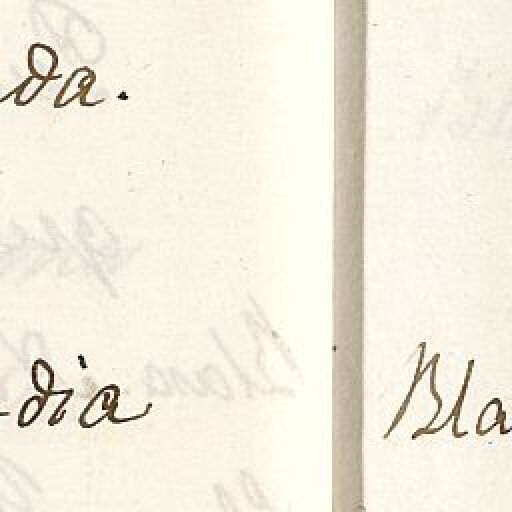 da.
dia
Bla